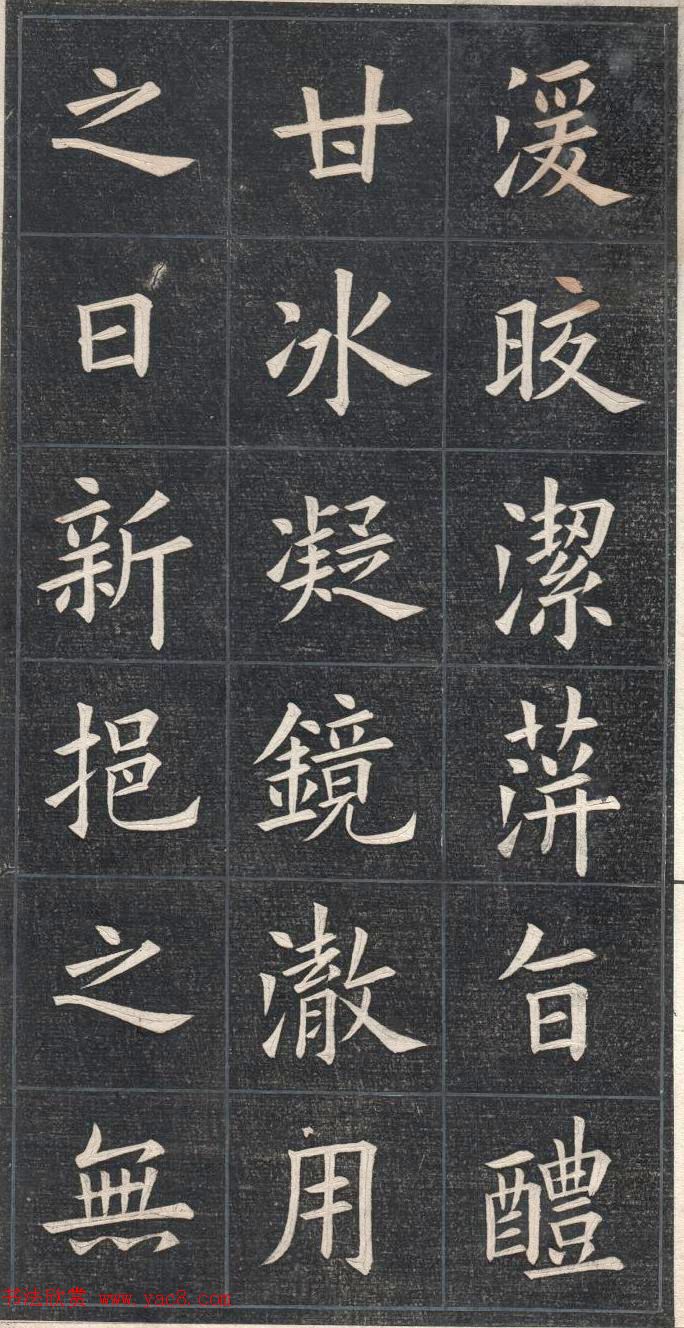 湲晈潔蓱旨醴
甘冰凝鏡澈用
之日新挹之無
书法欣赏 www.yac8.com